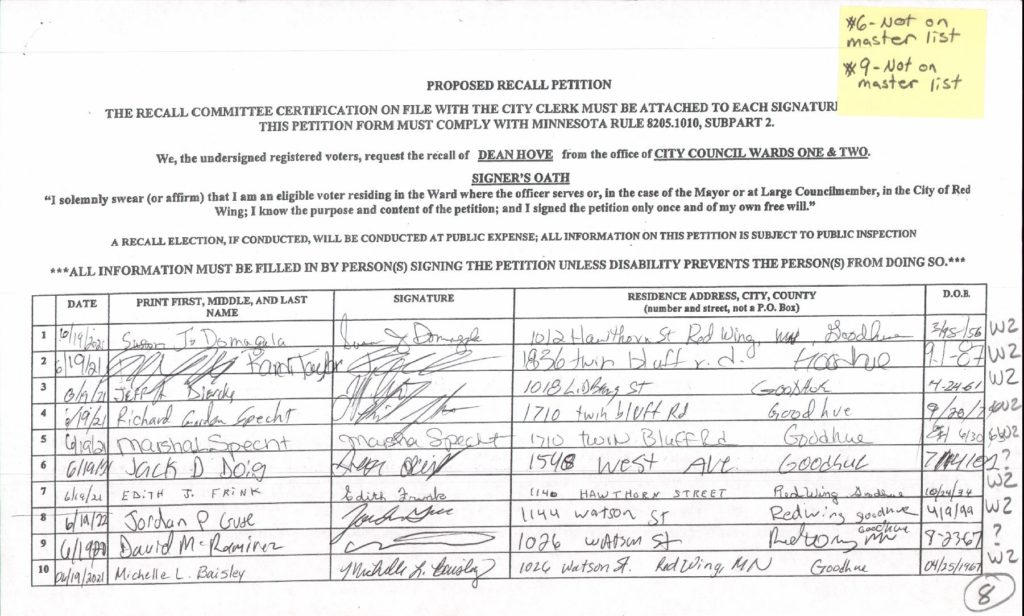 #6-Not on
master list
#9-Not on
master list
PROPOSED RECALL PETITION
THE RECALL COMMITTEE CERTIFICATION ON FILE WITH THE CITY CLERK MUST BE ATTACHED TO EACH SIGNATURE
THIS PETITION FORM MUST COMPLY WITH MINNESOTA RULE 8205.1010, SUBPART 2.
We, the undersigned registered voters, request the recall of DEAN HOVE from the office of CITY COUNCIL WARDS ONE & TWO.
SIGNER'S OATH
"I solemnly swear (or affirm) that I am an eligible voter residing in the Ward where the officer serves or, in the case of the Mayor or at Large Councilmember, in the City of Red
Wing; I know the purpose and content of the petition; and I signed the petition only once and of my own free will."
A RECALL ELECTION, IF CONDUCTED, WILL BE CONDUCTED AT PUBLIC EXPENSE; ALL INFORMATION ON THIS PETITION IS SUBJECT TO PUBLIC INSPECTION
***ALL INFORMATION MUST BE FILLED IN BY PERSON(S) SIGNING THE PETITION UNLESS DISABILITY PREVENTS THE PERSON(S) FROM DOING SO.***
DATE PRINT FIRST, MIDDLE, AND LAST NAME SIGNATURE RESIDENCE ADDRESS, CITY, COUNTY (number and street, not a P.O. Box) D.O.B.
1 Susan J. Domagala 1012 Hawthorn St Red Wing, Goodhue W2
2 6/19/21 Taylor 1836 twin bluff r.d. W2
3 JEFF 1018 St GOODHUE 4-24-61 W2
4 6/19/21 Richard Gordon Specht 1710 twin bluff Rd Goodhue
5 6/19/21 Marsha Specht Marsha Specht 1710 twin Bluff Rd Goodhue
6 Jack D Doig West Ave Goodhue ?
7 6/19/21 EDITH J. FRINK Edith Frink 1140 HAWTHORN STREET Red Wing W2
8 Jordan P Guse 1144 watson St Red wing goodhue 4/9/99 W2
9 David Mc Ramirez 1026 watson St Red Wing MN goodhue ?
10 06/19/2021 Michelle L. Baisley Michelle L. Baisley 1026 Watson St. Red Wing, MN Goodhue 04/25/1967 W2
8